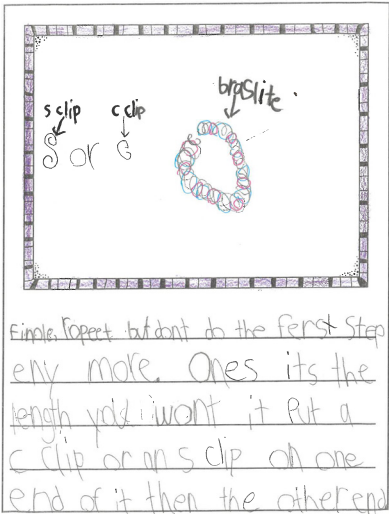 braslite
s clip c clip
S or c
Finole, ropeet but dont do the ferst step
eny more. Ones its the
length you wont it Put a
c clip or an s clip on one
end of it then the other end